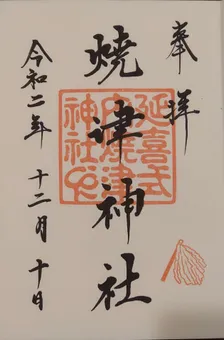 奉拝
燒津神社
延喜式
内焼津
神社也
令和二年 十二月 十日